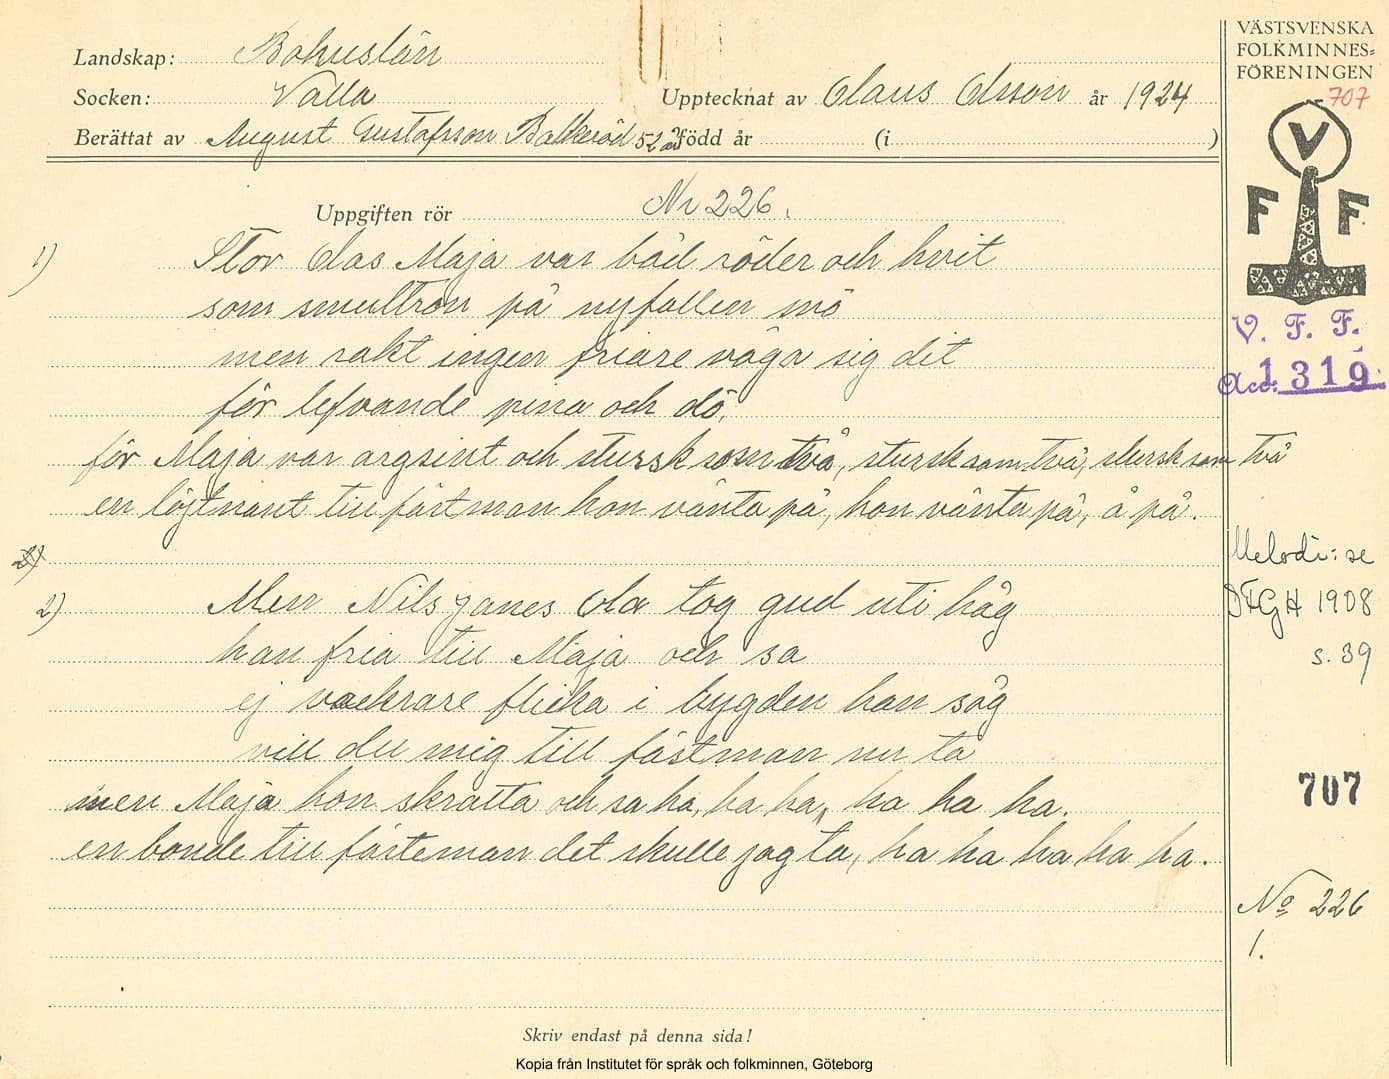 Landskap: Bohuslän
Socken: Valla
Upptecknat av Claus Olsson år 1924
Berättat av August Gustafsson Balkeröd 52 år född år (i )
VÄSTSVENSKA
FOLKMINNES=
FÖRENINGEN
707
V
F F
V. F. F.
Acc. 1319
Uppgiften rör Nr 226.
1) Stor Olas Maja var båd röder och hvit
som smultron på nyfallen snö
men rakt ingen friare våga sig dit
för lefvande pina och dö.
för Maja var argsint och stursk som två, stursk som två, stursk som två
en löjtnant till fästman hon vänta på, hon vänta på, å på.
2)
2) Men Nils Janes Ola tog gud uti håg
han fria till Maja och sa
ej vackrare flicka i bygden han såg
vill du mig till fästman nu ta
men Maja hon skratta och sa ha, ha ha, ha ha ha.
en bonde till fästeman det skulle jag ta, ha ha ha ha ha.
Melodi: se
DFGH 1908
s. 39
707
No 226
1.
Skriv endast på denna sida!
Kopia från Institutet för språk och folkminnen, Göteborg